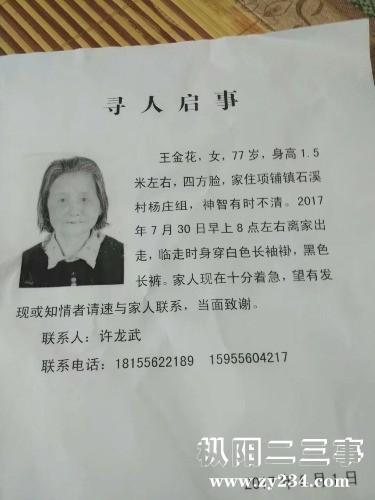 寻人启事
王金花，女，77岁，身高1.5
米左右，四方脸，家住项铺镇石溪
村杨庄组，神智有时不清。2017
年7月30日早上8点左右离家出
走，临走时身穿白色长袖褂，黑色
长裤。家人现在十分着急，望有发
现或知情者请速与家人联系，当面致谢。
联系人：许龙武
联系电话：18155622189 15955604217
枞阳二三事
www.zy234.com
1日